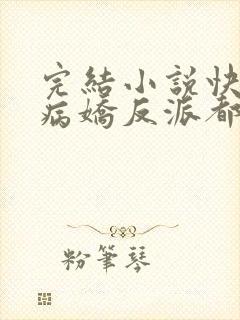 完結小說快
病嬌反派都
粉筆琴